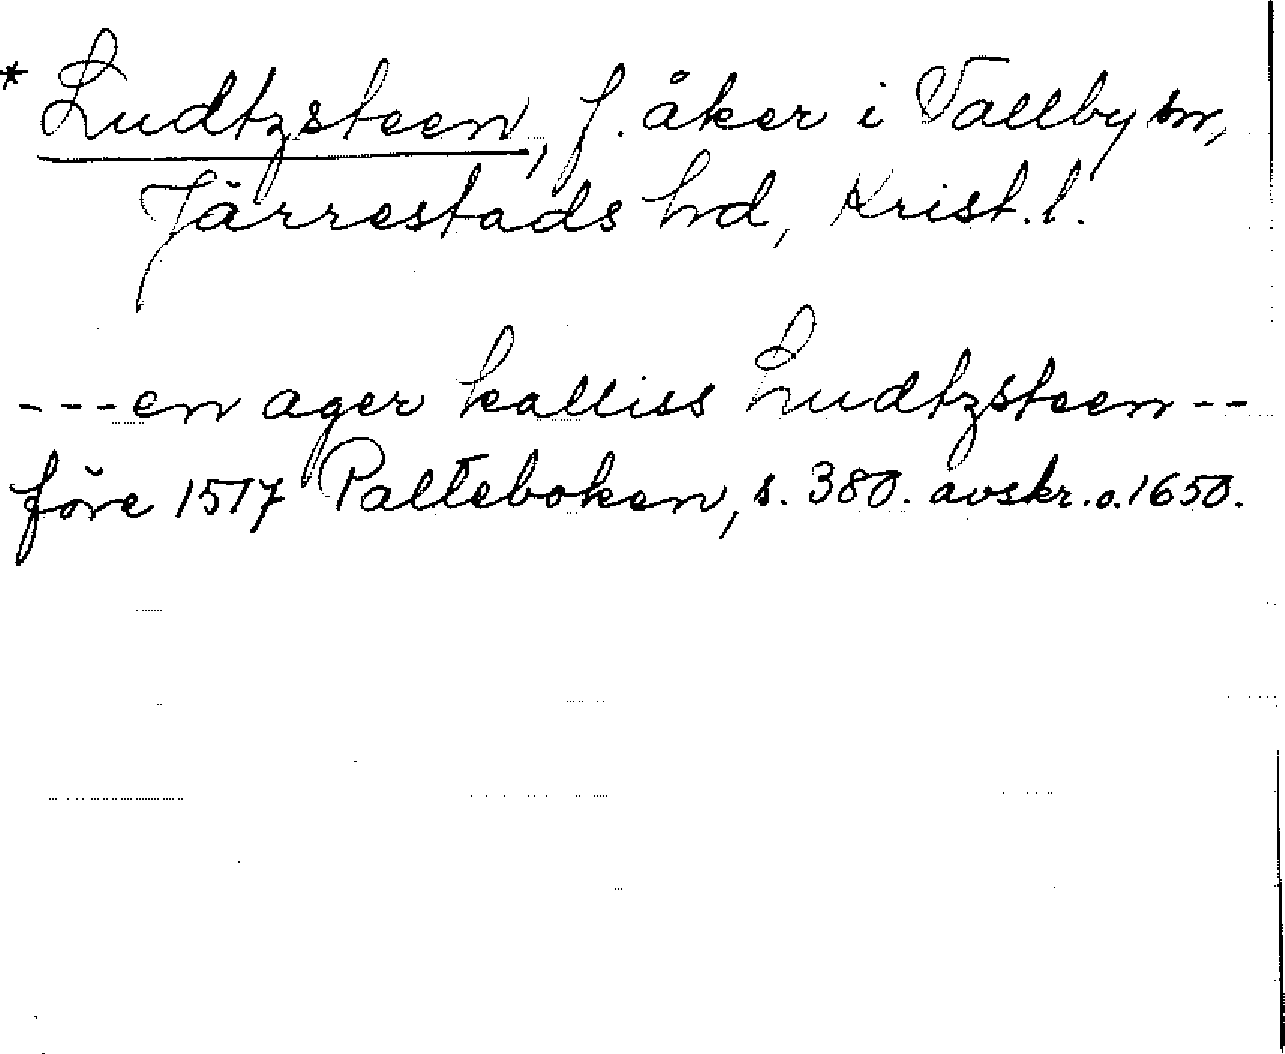 * Ludtzsteen, f. åker i Vallby sn,
Järrestads hd, Krist. l.
---en ager kalliss Ludtzsteen--
före 1517 Palteboken, s. 380. avskr. o. 1650.